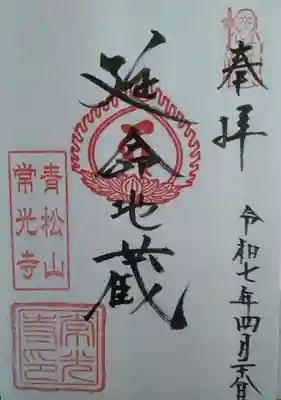 奉拝
令和七年四月
延命地蔵
青松山
常光寺
常光
寺印